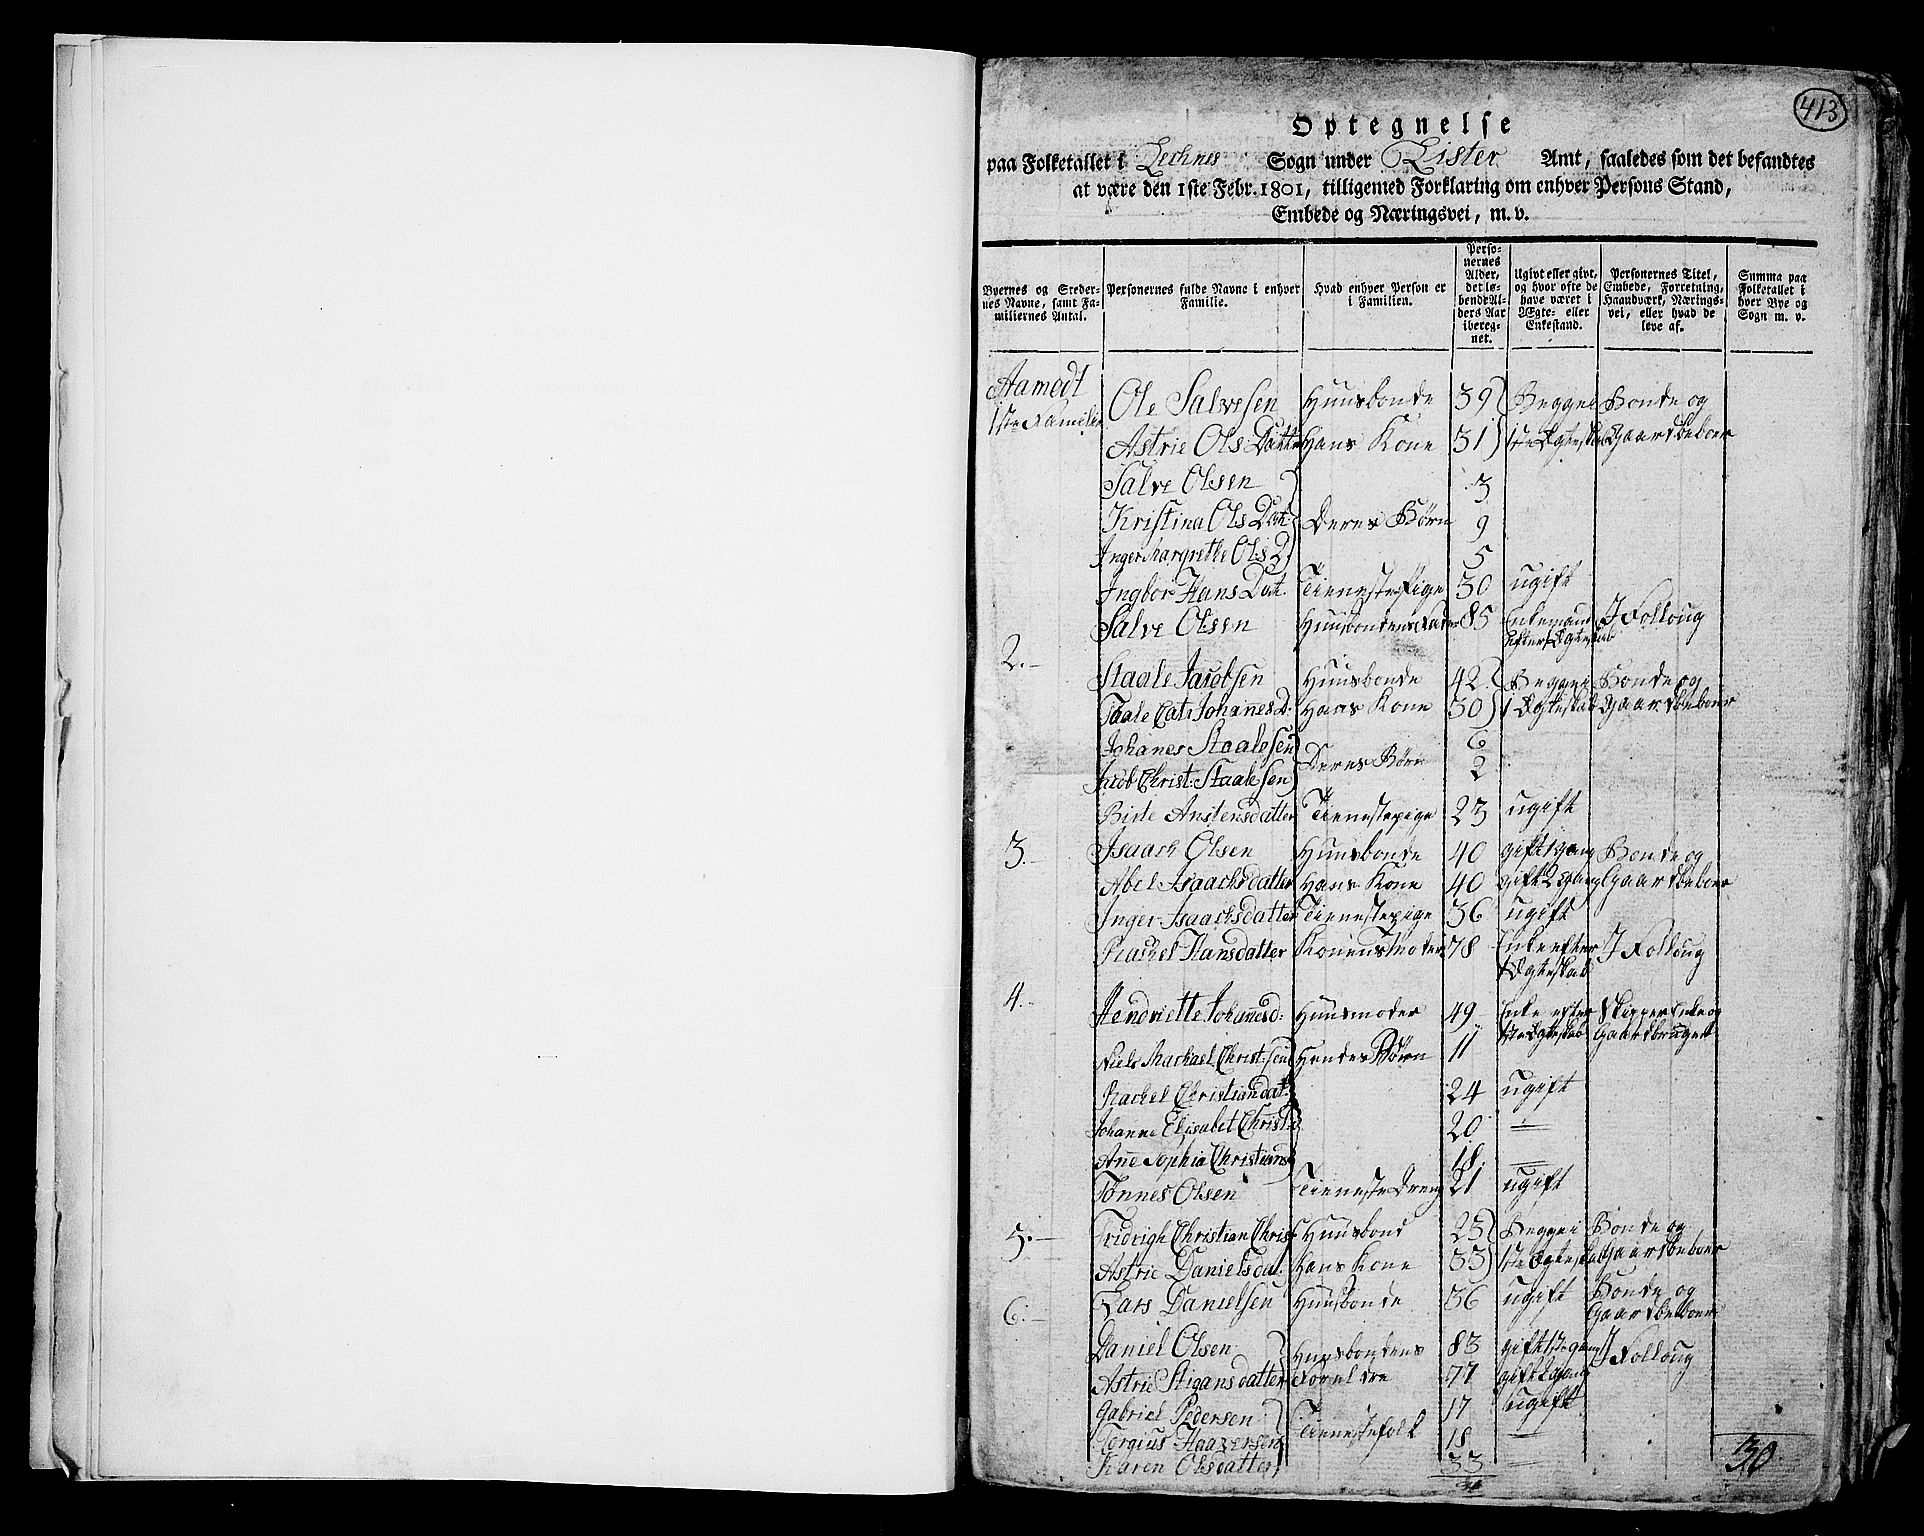 413
Optegnelse
paa Folketallet i Lechnes Sogn under Lister Amt, saaledes som det befandtes
at være den 1ste Febr. 1801, tilligemed Forklaring om enhver Persons Stand,
Embede og Næringsvei, m. v.
Byernes og Steder-
nes Navne, samt Fa-
miliernes Antal.
Personernes fulde Navne i enhver
Familie.
Hvad enhver Person er
i Familien.
Perso-
nernes
Alder,
det lø-
bende Al-
ders Aar
ibereg-
net.
Ugivt eller givt,
og hvor ofte de
have været i
Ægte- eller
Enkestand.
Personernes Titel,
Embede, Forretning,
Haandværk, Nærings-
vei, eller hvad de
leve af.
Summa paa
Folketallet i
hver Bye og
Sogn m. v.
Aamodt
1ste Familie Ole Salvesen Huusbonde 39 Begge i Bonde og
Astrie Ols Datter Hans Kone 31 1ste Ægteskab Gaardbeboer
Salve Olsen 3
Kristina Ols Dat Deres Børn 9
Inger Margrethe Ols D 5
Ingbor Hans Dat. Tienestepige 30 ugift
Salve Olsen Huusbondens Fader 85 Enkemand J Folloug
efter 1 Ægteskab
2. Staale Jacobsen Huusbonde 42 Begge i Bonde og
Taale Cat. Johanes D. Hans Kone 30 1 Ægteskab Gaardbeboer
Johanes Staalesen 6
Jacob Christ: Staalesen Deres Børn 2
Birte Anstensdatter Tienestepige 23 ugift
3. Isaach Olsen Huusbonde 40 gift 1 gang Bonde og
Abel Isaachsdatter Hans Kone 40 gift 2 gang Gaardbeboer
Inger Isaachsdatter Tienestepige 36 ugift
Rachel Hansdatter Konens Moder 78 Enke efter J Folloug
1 Ægteskab
4. Hendriette Johanesd: Huusmoder 49 Enke efter Skipper Enke og
1ste Ægteskab Gaardbruger
Niels Machael Christ:sen Hendes Børn 11
Rachel Christiansdat: 24 ugift
Johanne Elisabet Christ: 20 =
Ane Sophia Christians 18 =
Tønnes Olsen Tieneste Dreng 21 ugift
5. Fridrigh Christian Christ: Huusbond 25 Begge i Bonde og
Astrie Danielsdat. Hans Kone 33 1ste Ægteskab Gaardbeboer
6. Lars Danielsen Huusbonde 36 ugift Bonde og
Gaardbeboer
Daniel Olsen Huusbondens 83 gift 1 gang J Follough
Astrie Stigansdatter Forældre 77 gift 2 gang
Gabriel Pedersen 17 ugift
Torgius Haaversen Tienestefolk 18 =
Karen Olsdatter 33 =
30